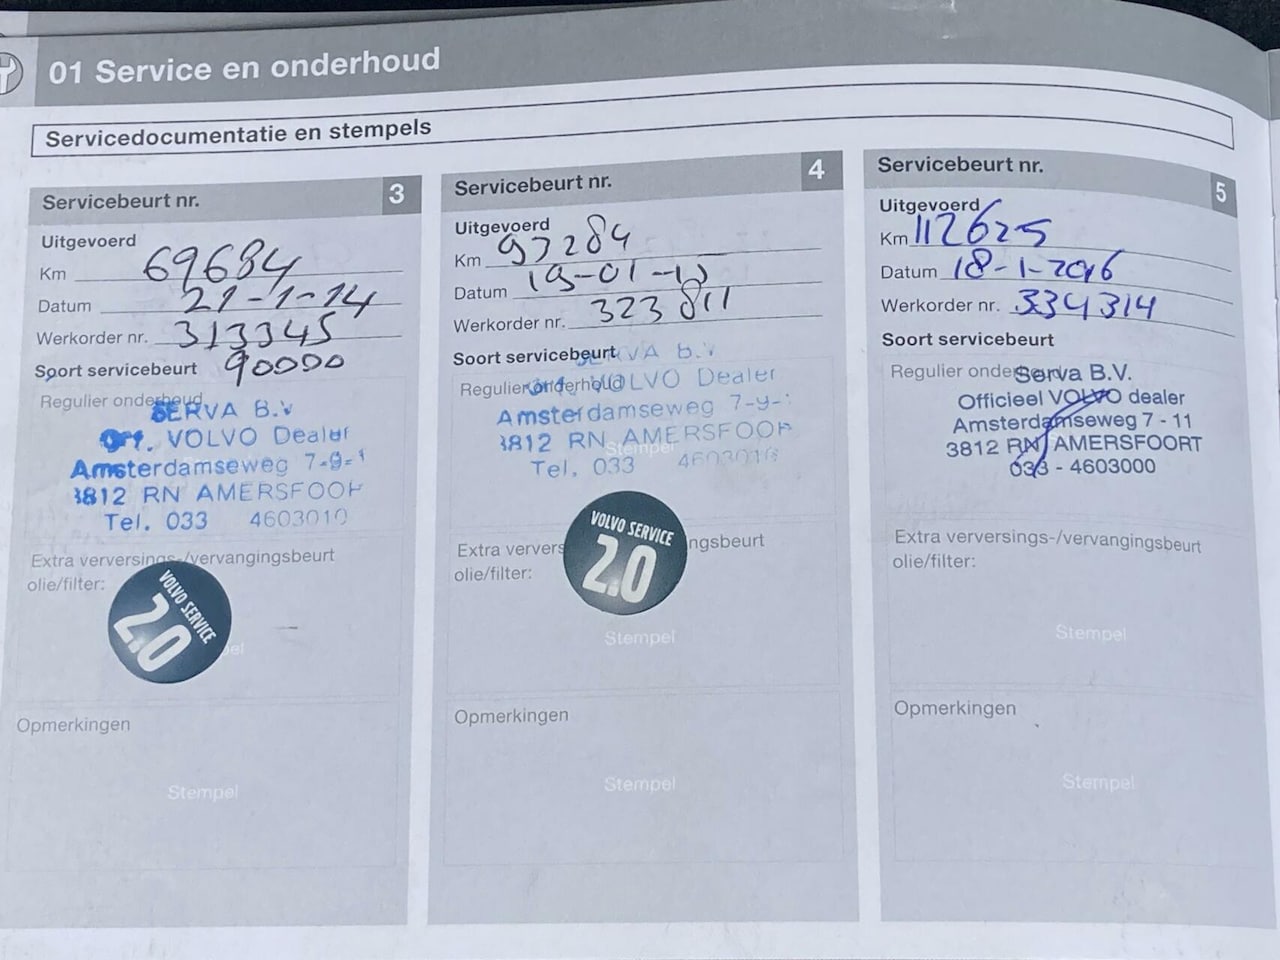 01 Service en onderhoud
Servicedocumentatie en stempels
Servicebeurt nr. 3
Uitgevoerd
Km 69684
Datum 21-1-14
Werkorder nr. 313345
Soort servicebeurt 90000
Regulier onderhoud
SERVA B.V
Off. VOLVO Dealer
Amsterdamseweg 7-9-1
3812 RN AMERSFOOR
Tel. 033 4603010
Extra verversings-/vervangingsbeurt
olie/filter:
VOLVO SERVICE
2.0
Opmerkingen
Stempel
Servicebeurt nr. 4
Uitgevoerd
Km 97284
Datum 19-01-15
Werkorder nr. 323811
Soort servicebeurt
SERVA B.V
Regulier onderhoud
VOLVO Dealer
Amsterdamseweg 7-9-
3812 RN AMERSFOOR
Stempel
Tel. 033 4603010
VOLVO SERVICE
2.0
Extra ververs ngsbeurt
olie/filter:
Stempel
Opmerkingen
Stempel
Servicebeurt nr. 5
Uitgevoerd
Km 112625
Datum 18-1-2016
Werkorder nr. 334314
Soort servicebeurt
Regulier onde
Serva B.V.
Officieel VOLVO dealer
Amsterdamseweg 7 - 11
3812 RN AMERSFOORT
033 - 4603000
Extra verversings-/vervangingsbeurt
olie/filter:
Stempel
Opmerkingen
Stempel